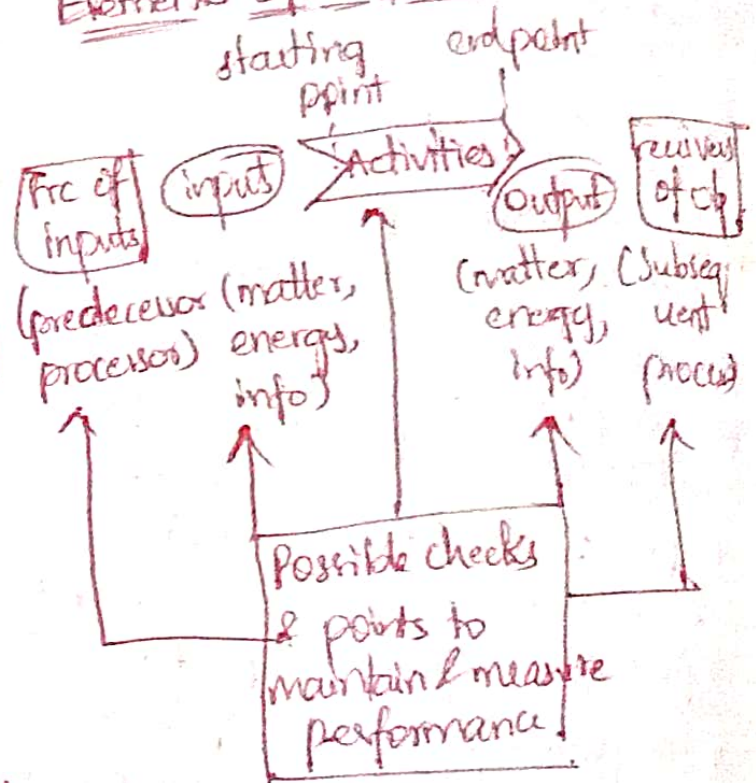 Elements of
starting
point
endpoint
src of
inputs
input
Activities
output
receivers
of o/p
(predecessor
processor)
(matter,
energy,
info)
(matter,
energy,
info)
(subseq
uent
process)
Possible checks
& points to
maintain & measure
performance